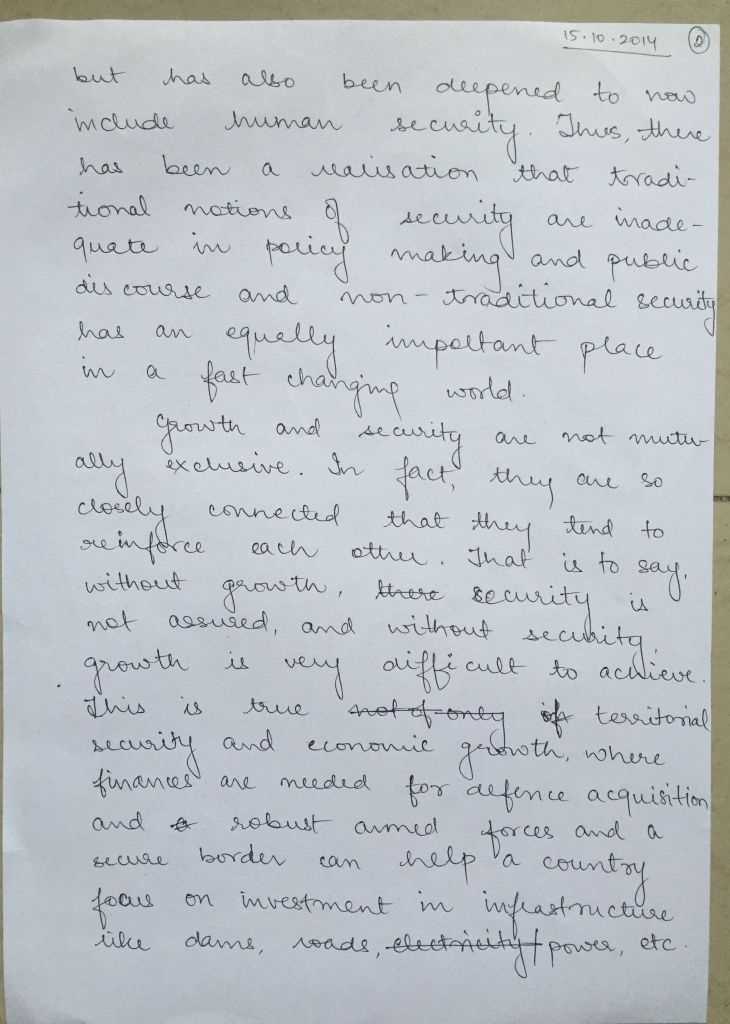 15.10.2014 2
but has also been deepened to now
include human security. Thus, there
has been a realisation that tradi-
tional notions of security are inade-
quate in policy making and public
discourse and non-traditional security
has an equally important place
in a fast changing world.
Growth and security are not mutu-
ally exclusive. In fact, they are so
closely connected that they tend to
reinforce each other. That is to say,
without growth, there security is
not assured, and without security,
growth is very difficult to achieve.
This is true not of only of territorial
security and economic growth, where
finances are needed for defence acquisition
and a robust armed forces and a
secure border can help a country
focus on investment in infrastructure
like dams, roads, electricity/power, etc.